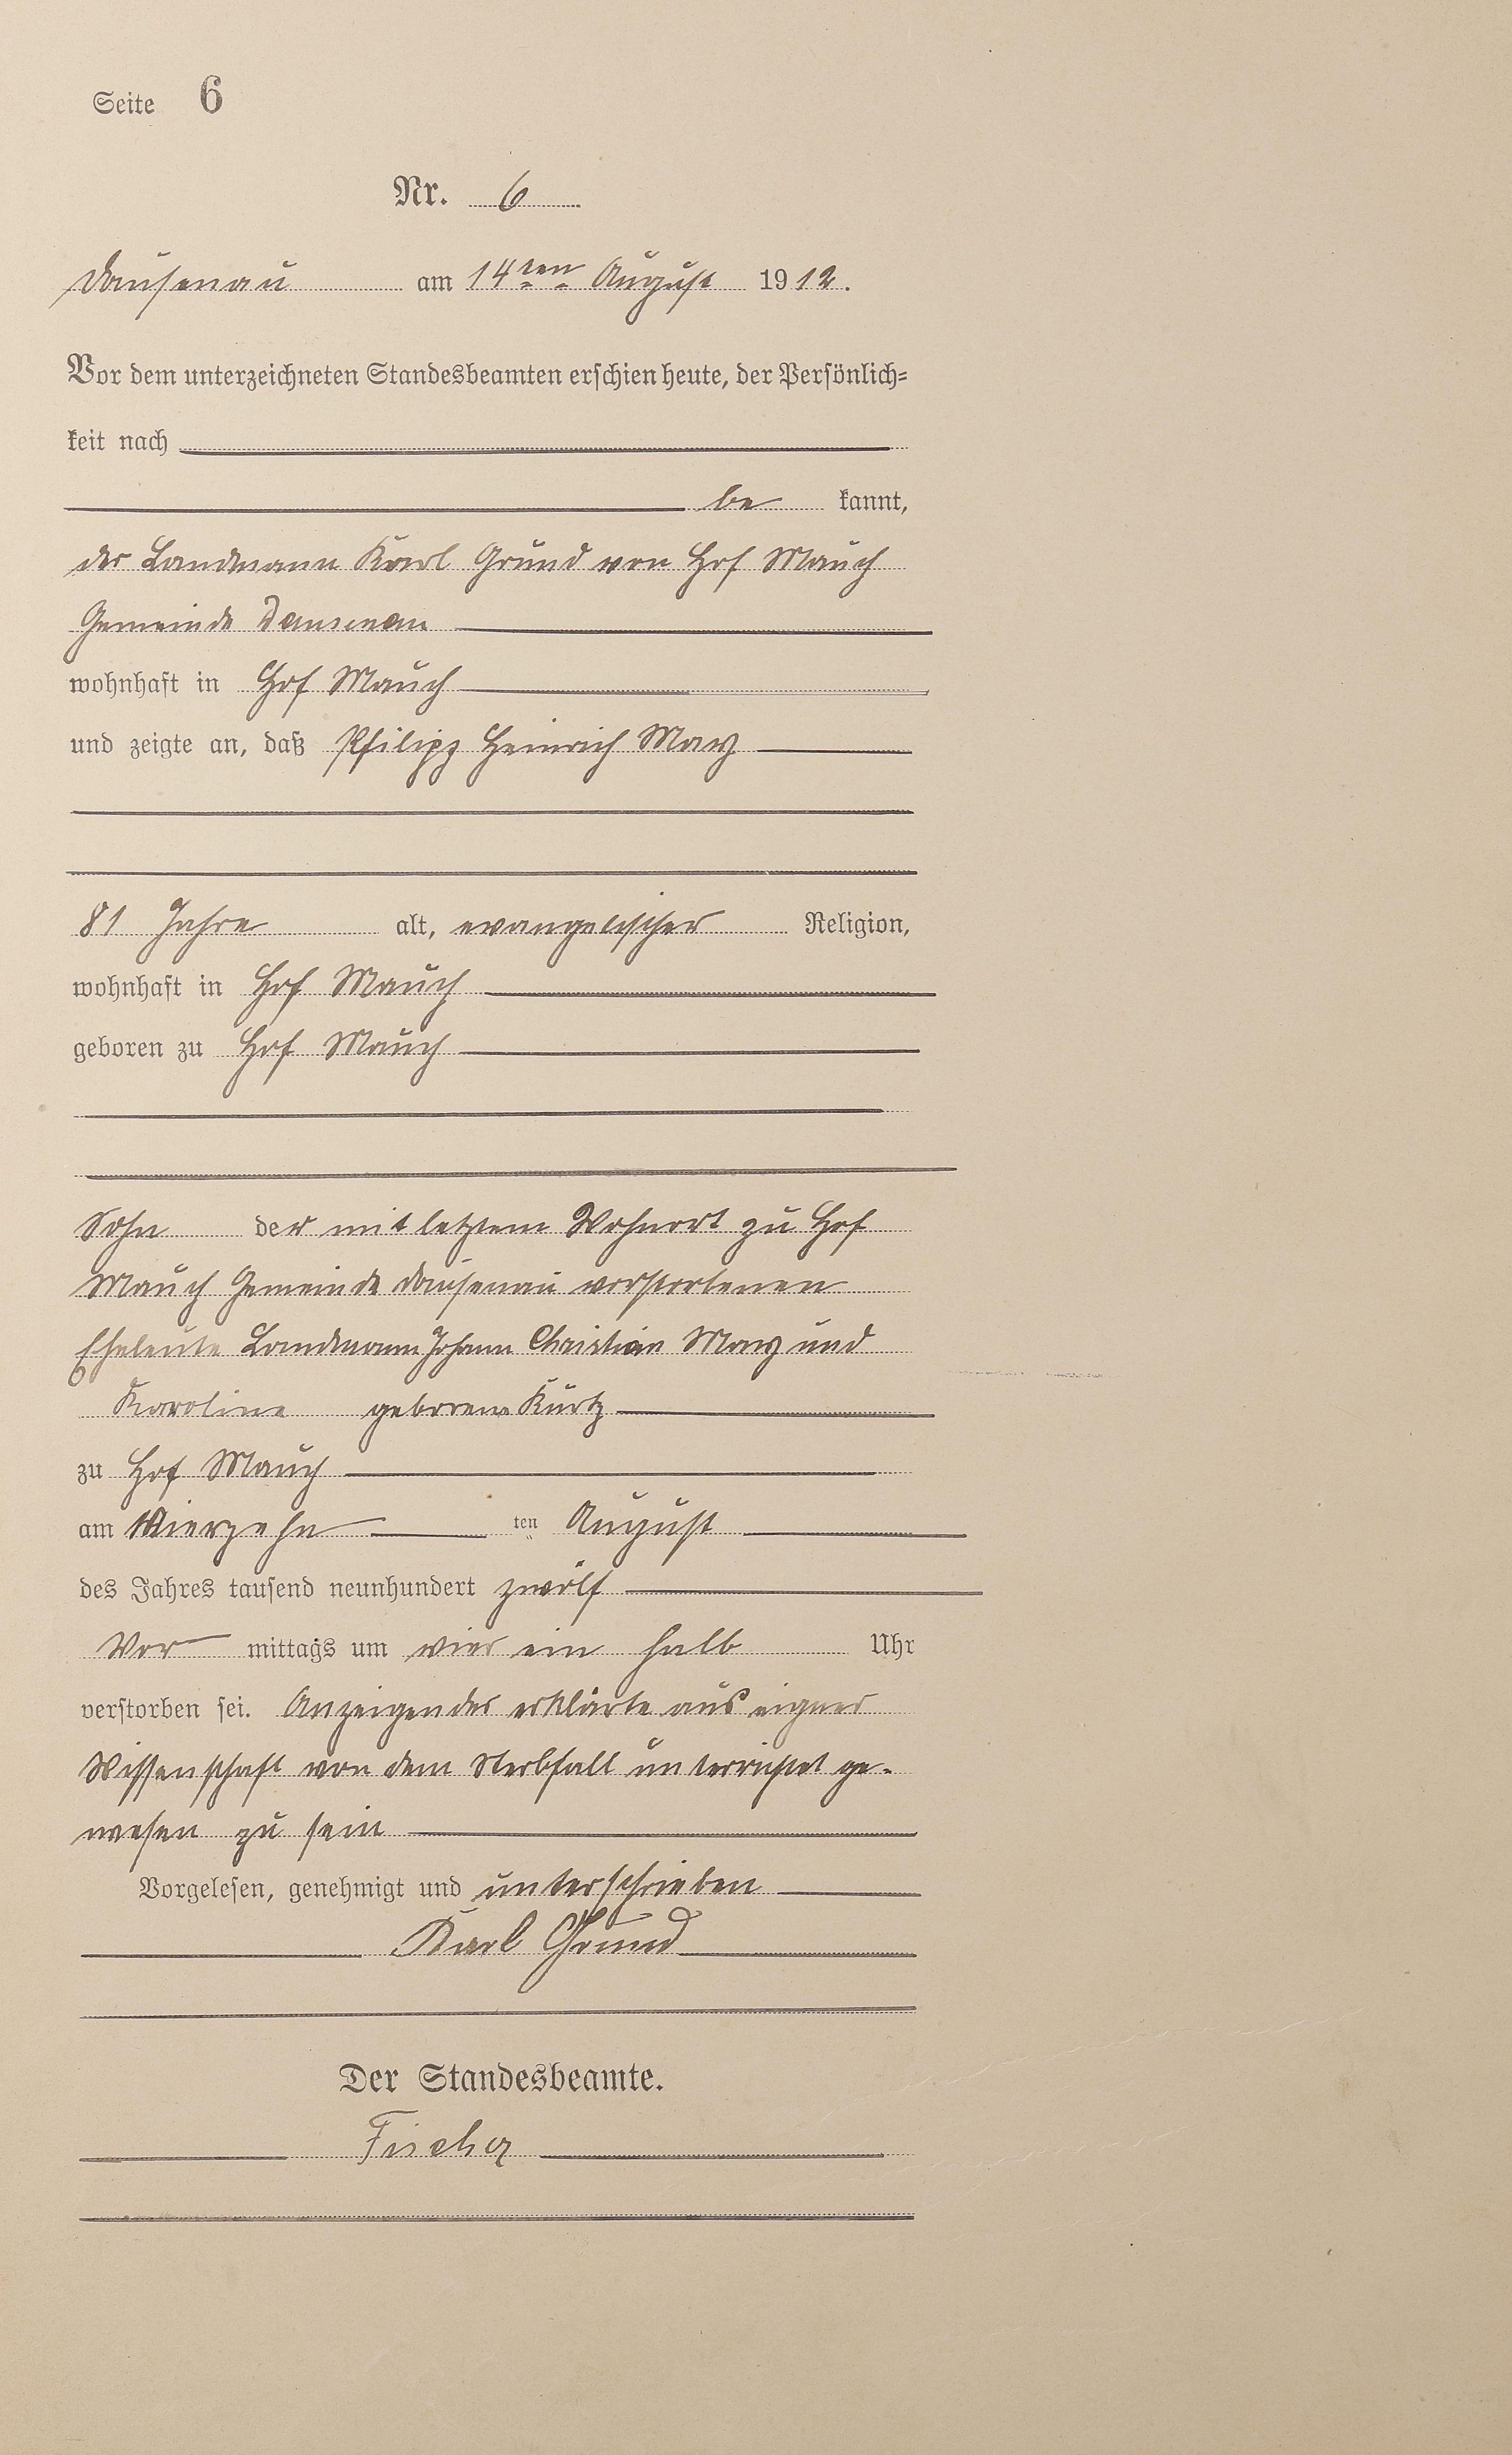 Seite 6
Nr. 6
Dausenau am 14ten August 1912.
Vor dem unterzeichneten Standesbeamten erschien heute, der Persönlich=
keit nach
be kannt,
der Landmann Karl Grund von Hof Mauch
Gemeinde Dausenau
wohnhaft in Hof Mauch
und zeigte an, daß Philipp Heinrich May
81 Jahre alt, evangelischer Religion,
wohnhaft in Hof Mauch
geboren zu Hof Mauch
Sohn der mit letztem Wohnort zu Hof
Mauch Gemeinde Dausenau verstorbenen
Eheleute Landmann Johann Christian May und
Karoline geborene Kurtz
zu Hof Mauch
am Vierzehn ten August
des Jahres tausend neunhundert zwölf
Vor mittags um vier ein halb Uhr
verstorben sei. Anzeigender erklärte aus eigner
Wissenschaft von dem Sterbfall unterrichtet ge-
wesen zu sein
Vorgelesen, genehmigt und unterschrieben
Karl Grund
Der Standesbeamte.
Fischer